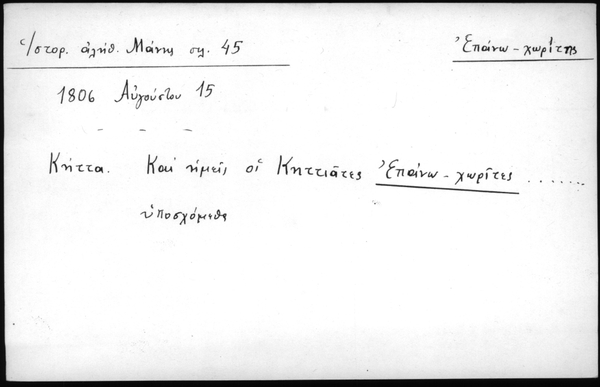 Ἱστορ. ἀλήθ. Μάνης σελ. 45
Ἐπάνω-χωρίτης
1806 Αὐγούστου 15
– – –
Κήττα. Καὶ ἡμεῖς οἱ Κηττιᾶτες Ἐπάνω-χωρῖτες ......
ὑποσχόμεθα